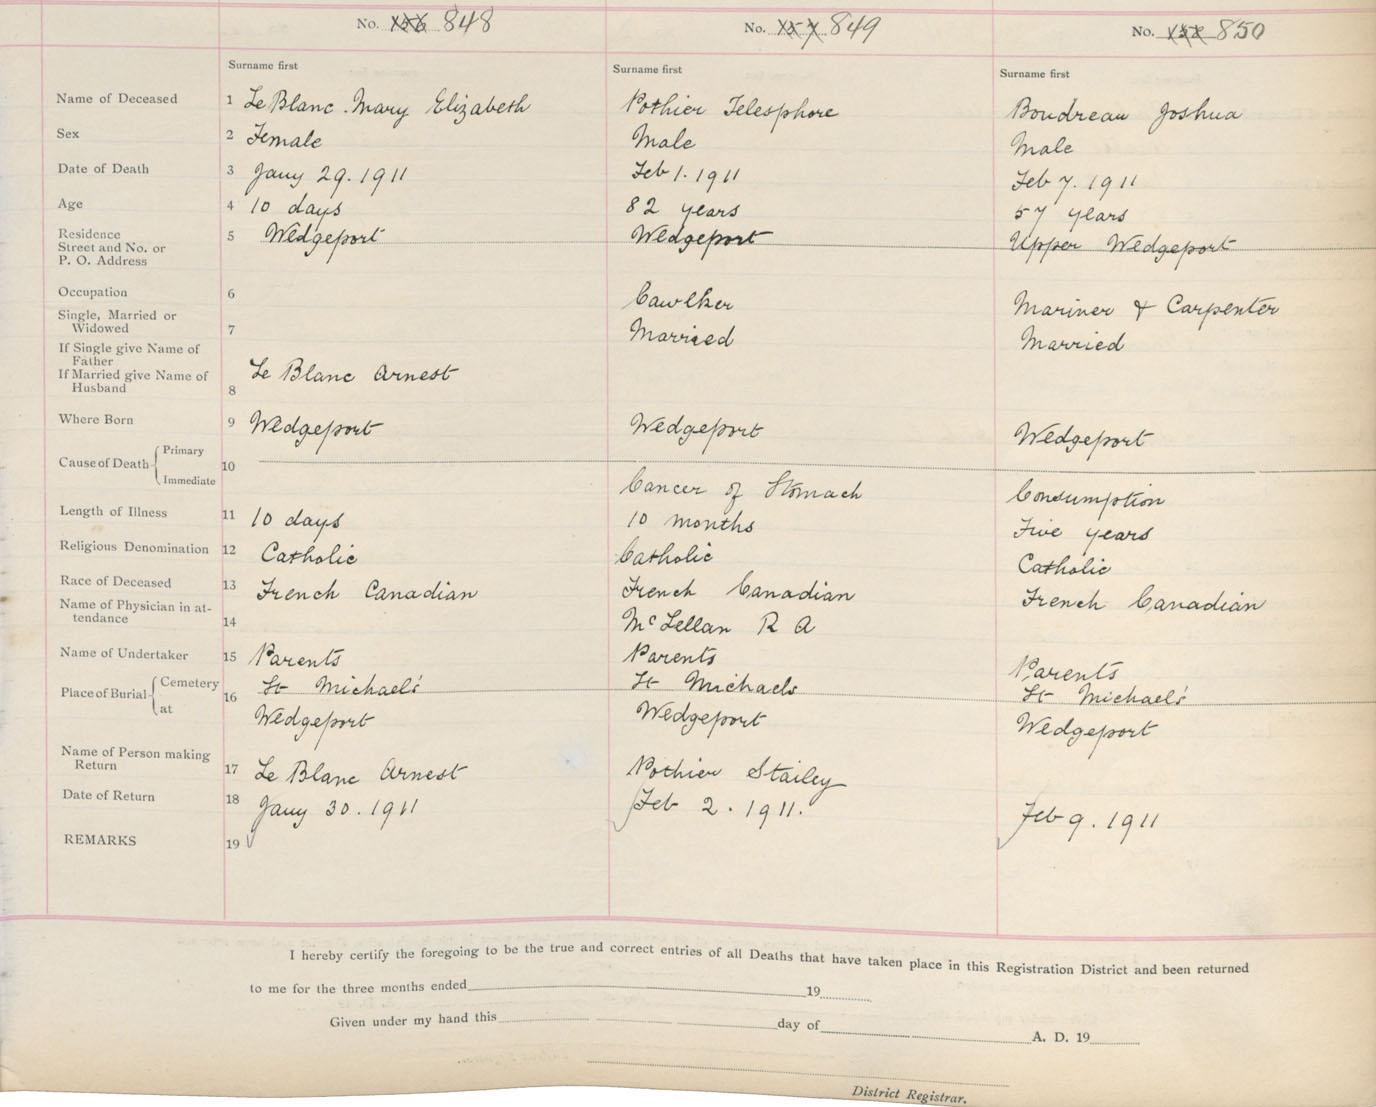 No. 848 No. 849 No. 850
Surname first Surname first Surname first
Name of Deceased 1 Le Blanc Mary Elizabeth Pothier Telesphore Boudreau Joshua
Sex 2 Female Male Male
Date of Death 3 Jany 29. 1911 Feb 1. 1911 Feb 7. 1911
Age 4 10 days 82 years 57 years
Residence
Street and No. or
P. O. Address 5 Wedgeport Wedgeport Upper Wedgeport
Occupation 6 Cawlker Mariner & Carpenter
Single, Married or
Widowed 7 Married Married
If Single give Name of
Father
If Married give Name of
Husband 8 Le Blanc Arnest
Where Born 9 Wedgeport Wedgeport Wedgeport
Cause of Death Primary
Immediate 10 Cancer of Stomach Consumption
Length of Illness 11 10 days 10 months Five years
Religious Denomination 12 Catholic Catholic Catholic
Race of Deceased 13 French Canadian French Canadian French Canadian
Name of Physician in at-
tendance 14 McLellan R A
Name of Undertaker 15 Parents Parents Parents
Place of Burial Cemetery 16 St Michael's St Michaels St Michaels'
at Wedgeport Wedgeport Wedgeport
Name of Person making
Return 17 Le Blanc Arnest Pothier Stailey
Date of Return 18 Jany 30. 1911 Feb 2. 1911. Feb 9. 1911
REMARKS 19
I hereby certify the foregoing to be the true and correct entries of all Deaths that have taken place in this Registration District and been returned
to me for the three months ended 19
Given under my hand this day of A. D. 19
District Registrar.